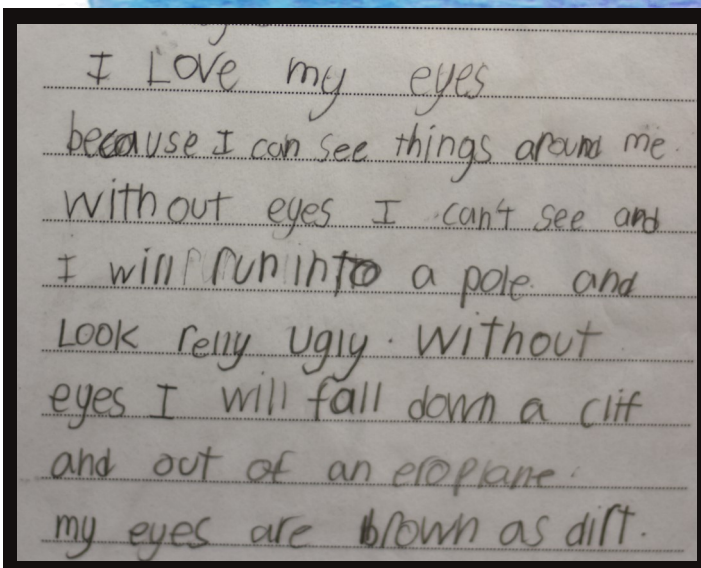 I Love my eyes
because I can see things around me.
Without eyes I can't see and
I will run into a pole and
Look relly ugly. Without
eyes I will fall down a clif
and out of an eroplane.
my eyes are brown as dirt.